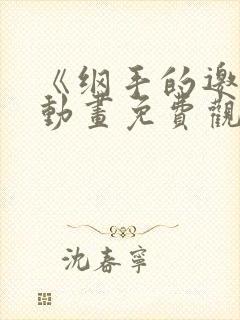 《纲手的邀
動畫免費觀
沈春寧